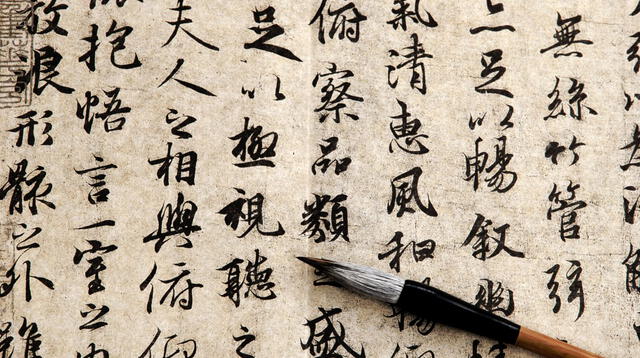 無絲竹管弦
足以暢叙幽情
氣清惠風和暢
俯察品類之盛
足以極視聽之
夫人之相與俯仰
抱悟言一室之內
放浪形骸之外雖